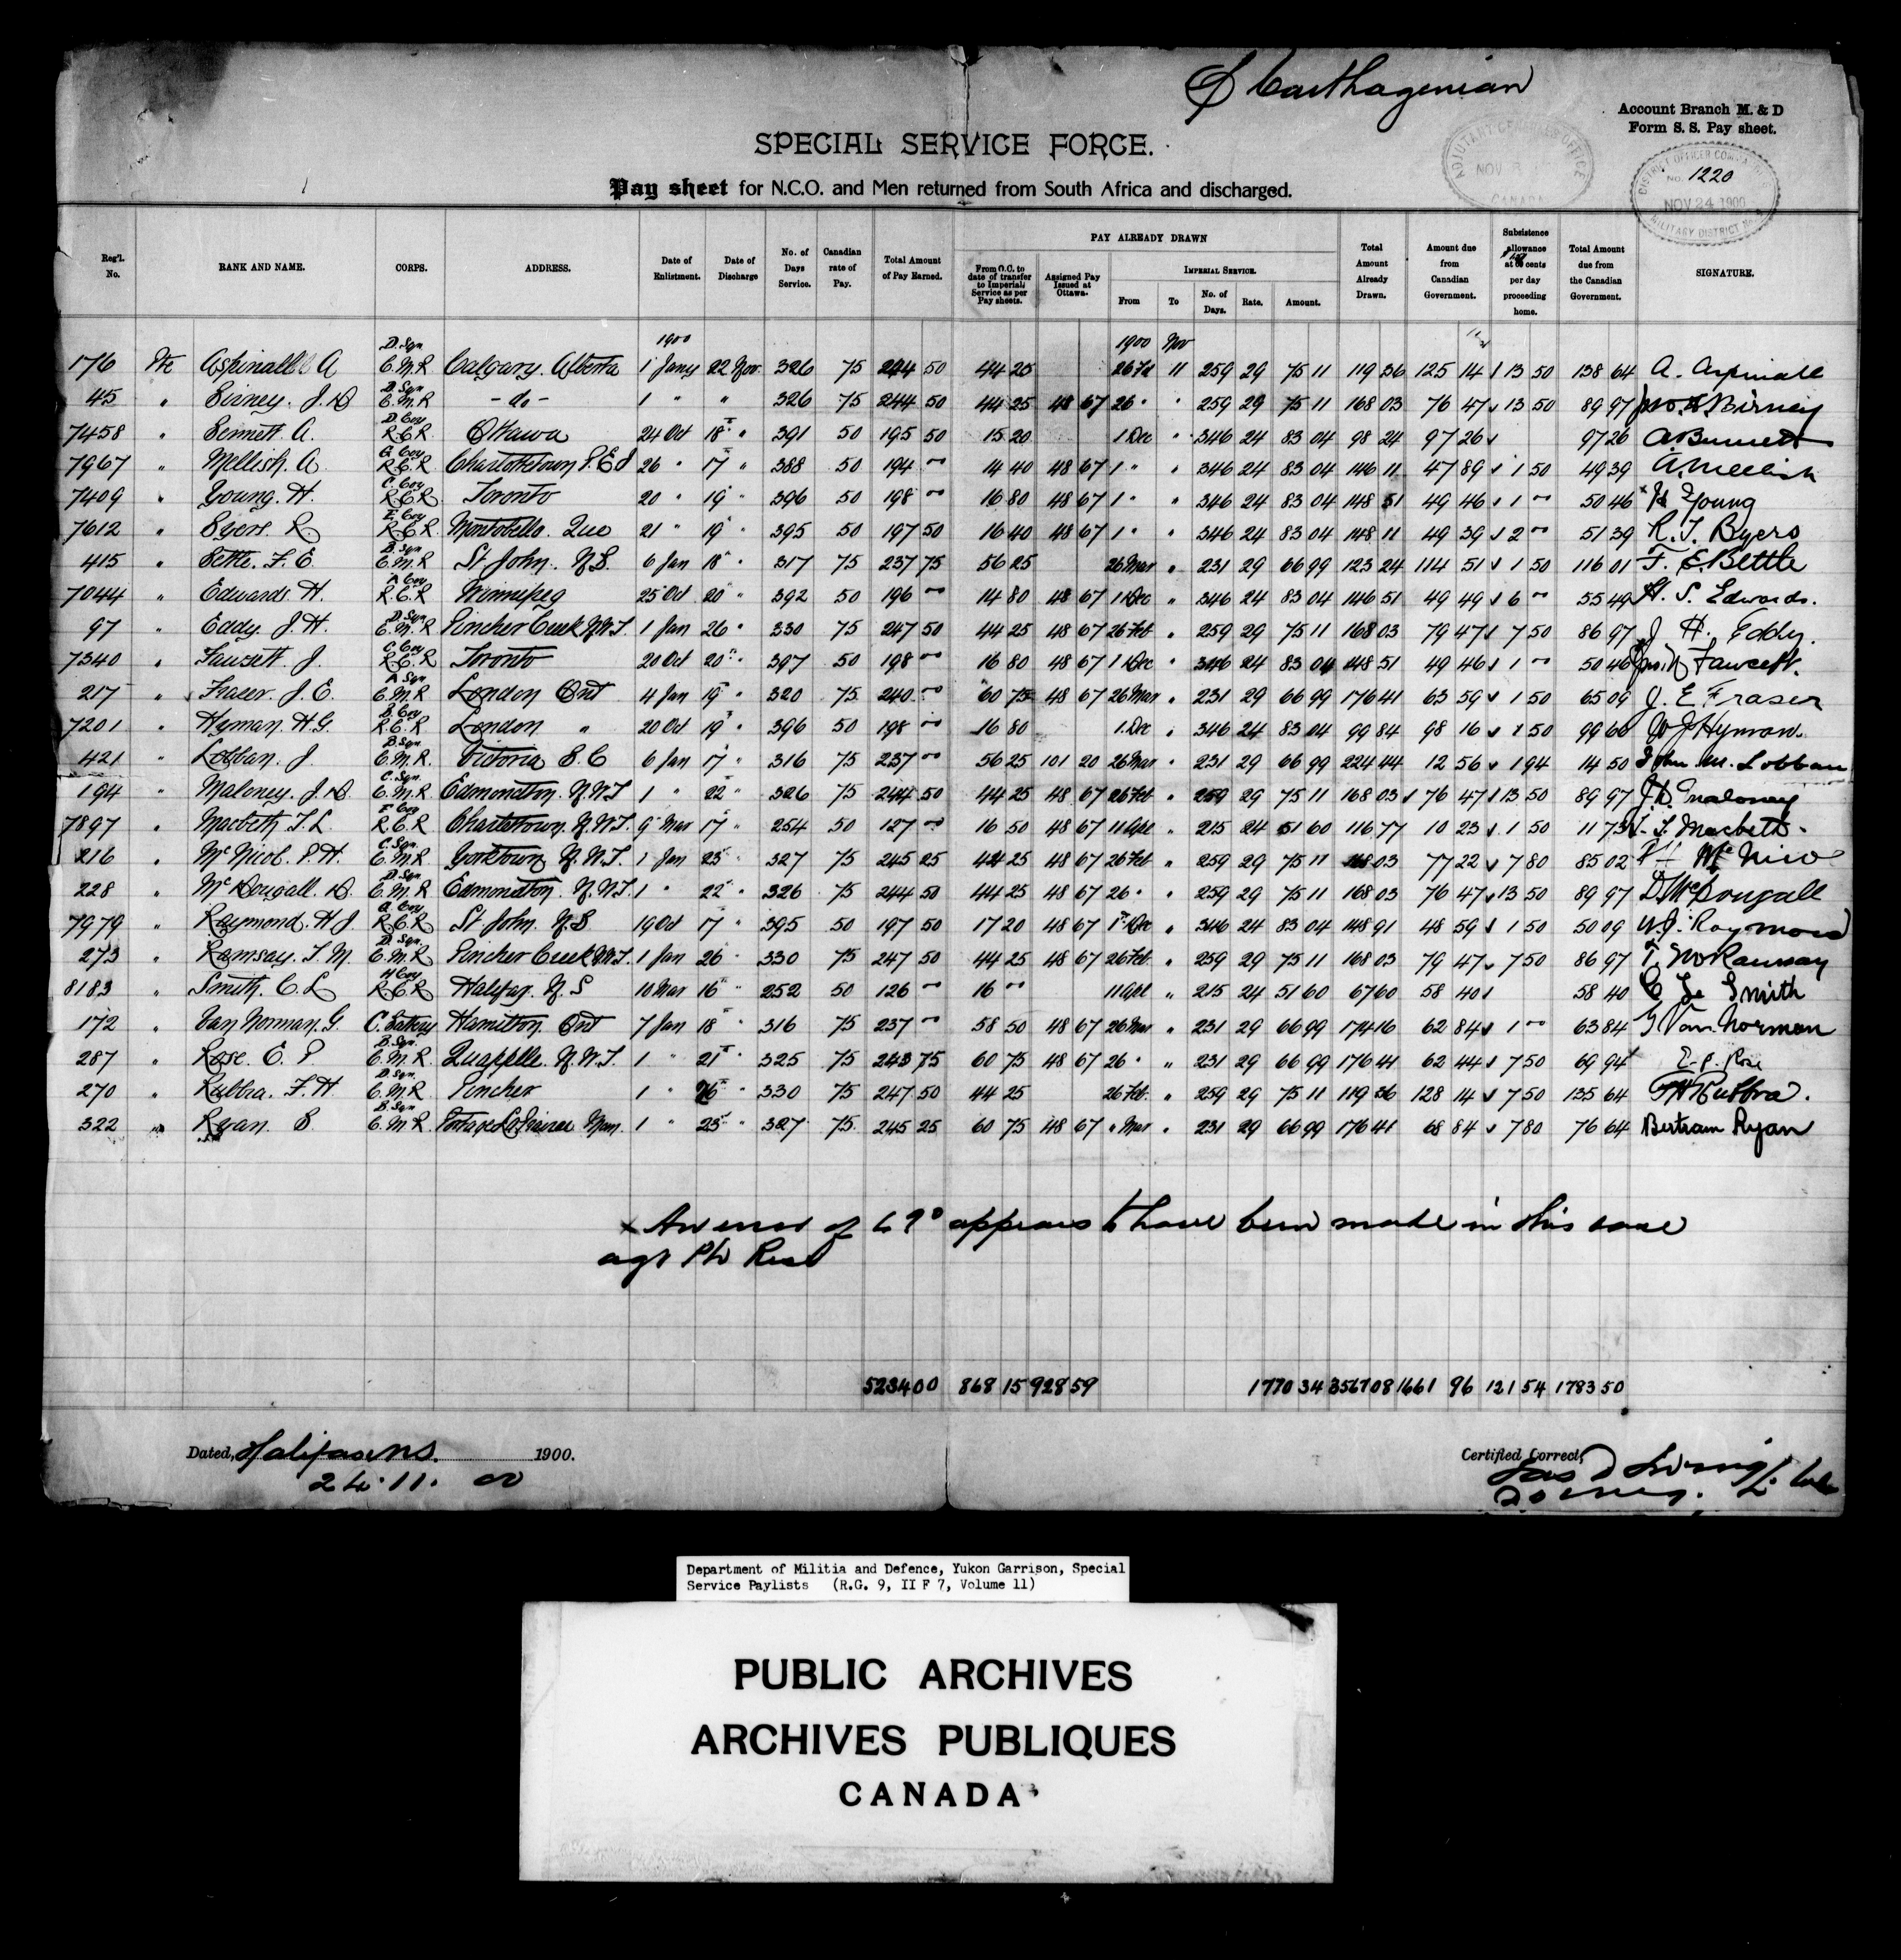 SS Carthagenian
Account Branch M. & D
Form S. S. Pay sheet.
ADJUTANT GENERALS OFFICE
NOV
CANADA
DISTRICT OFFICER COM
No. 1220
NOV 24 1900
MILITARY DISTRICT No.
SPECIAL SERVICE FORCE.
Pay sheet for N.C.O. and Men returned from South Africa and discharged.
Reg'l. No. RANK AND NAME. CORPS. ADDRESS. Date of Enlistment. Date of Discharge No. of Days Service. Canadian rate of Pay. Total Amount of Pay Earned. PAY ALREADY DRAWN From O.C. to date of transfer to Imperial Service as per Pay sheets. Assigned Pay Issued at Ottawa. IMPERIAL SERVICE. From To No. of Days. Rate. Amount. Total Amount Already Drawn. Amount due from Canadian Government. Subsistence allowance at cents per day proceeding home. Total Amount due from the Canadian Government. SIGNATURE.
1900 1900 Nov
176 Pte Aspinall A D. Sqn C.M.R Calgary. Alberta 1 Jany 22 Nov. 326 75 244 50 44 25 26 Fe 11 259 29 75 11 119 36 125 14 13 50 138 64 A. Aspinall
45 " Birney. J.D D Sqn C.M.R - do - 1 " " 326 75 244 50 44 25 48 67 26 " " 259 29 75 11 168 03 76 47 13 50 89 97 Birney
7458 " Bennett. A. D Coy R.C.R. Ottawa 24 Oct 18 " 391 50 195 50 15 20 1 Dec " 346 24 83 04 98 24 97 26 97 26 A Bennett
7967 " Mellish. A. G Coy R.C.R Charlottetown P.E.I 26 " 17 " 388 50 194 00 14 40 48 67 1 " " 346 24 83 04 146 11 47 89 1 50 49 39 A. Mellish
7409 " Young. H. C. Coy R.C.R Toronto 20 " 19 " 396 50 198 00 16 80 48 67 1 " " 346 24 83 04 148 51 49 46 1 00 50 46 H Young
7612 " Byers. R E. Coy R.C.R Montobello. Que 21 " 19 " 395 50 197 50 16 40 48 67 1 " " 346 24 83 04 148 11 49 39 2 00 51 39 R. J. Byers
415 " Bettle. F. E. B. Sqn C.M.R St John. N.B. 6 Jan 18 " 317 75 237 75 56 25 26 Mar " 231 29 66 99 123 24 114 51 1 50 116 01 F. E. Bettle
7044 " Edwards. H. A Coy R.C.R Winnipeg 25 Oct 20 " 392 50 196 00 14 80 48 67 1 Dec " 346 24 83 04 146 51 49 49 6 00 55 49 H. S. Edwards.
97 " Eddy. J. H. D. Sqn C.M.R Pincher Creek N.W.T. 1 Jan 26 " 330 75 247 50 44 25 48 67 26 Feb " 259 29 75 11 168 03 79 47 7 50 86 97 J H. Eddy.
7340 " Fawcett. J. C. Coy R.C.R Toronto 20 Oct 20 " 397 50 198 00 16 80 48 67 1 Dec " 346 24 83 04 148 51 49 46 1 00 50 46 Fawcett.
217 " Fraser. J. E. A Sqn C.M.R London Ont 4 Jan 19 " 320 75 240 00 60 75 48 67 26 Mar " 231 29 66 99 176 41 63 59 1 50 65 09 J. E Fraser
7201 " Hyman. H.G. B. Coy R.C.R. London " 20 Oct 19 " 396 50 198 00 16 80 1 Dec " 346 24 83 04 99 84 98 16 1 50 99 66 Hyman.
421 " Lobban. J. B. Sqn C.M.R. Victoria B.C 6 Jan 17 " 316 75 237 00 56 25 101 20 26 Mar " 231 29 66 99 224 44 12 56 1 94 14 50 John M. Lobban
194 " Maloney. J.D. C. Sqn. C.M.R Edmonton. N.W.T 1 " 22 " 326 75 244 50 44 25 48 67 26 Feb " 259 29 75 11 168 03 76 47 13 50 89 97 J.D. Maloney
7897 " Macbeth T.L. F Coy R.C.R. Charlestown. N.W.T. 9 Mar 17 " 254 50 127 00 16 50 48 67 11 Apl " 215 24 51 60 116 77 10 23 1 50 11 73 Macbeth.
216 " McNicol. P.H. C. Sqn. C.M.R Yorktown N.W.T. 1 Jan 23 " 327 75 245 25 44 25 48 67 26 Feb " 259 29 75 11 168 03 77 22 7 80 85 02 McNicol
228 " McDougall. D. D. Sqn C.M.R. Edmonton. N.W.T. 1 " 22 " 326 75 244 50 44 25 48 67 26 " " 259 29 75 11 168 03 76 47 13 50 89 97 D McDougall
7979 " Raymond. H J. G Coy R.C.R. St John. N.B 19 Oct 17 " 395 50 197 50 17 20 48 67 1 Dec " 346 24 83 04 148 91 48 59 1 50 50 09 Raymond
273 " Ramsay. T. M. D. Sqn. C.M.R. Pincher Creek N.W.T. 1 Jan 26 " 330 75 247 50 44 25 48 67 26 Feb. " 259 29 75 11 168 03 79 47 7 50 86 97 T. M Ramsay
8183 " Smith. C. L H Coy R.C.R Halifax. N.S 10 Mar 16 " 252 50 126 00 16 00 11 Apl " 215 24 51 60 67 60 58 40 58 40 C L Smith
172 " Van Norman. G. C. Battery Hamilton. Ont 7 Jan 18 " 316 75 237 00 58 50 48 67 26 Mar " 231 29 66 99 174 16 62 84 1 00 63 84 G Van Norman
287 " Rose. E. P B. Sqn. C.M.R. Quappelle. N.W.T. 1 " 21 " 325 75 243 75 60 75 48 67 26 " " 231 29 66 99 176 41 62 44 7 50 69 94 E. P. Rose
270 " Rubbra. F. H D. Sqn. C.M.R. Pincher 1 " 26 " 330 75 247 50 44 25 26 Feb. " 259 29 75 11 119 36 128 14 7 50 135 64 F H Rubbra.
322 " Ryan B B. Sqn C.M.R. Portage La Prairie Man. 1 " 23 " 327 75 245 25 60 75 48 67 " Mar " 231 29 66 99 176 41 68 84 7 80 76 64 Bertram Ryan
x An error of 69° appears to have been made in this case
agst Pte Rose
5234 00 868 15 928 59 1770 34 3567 08 1661 96 121 54 1783 50
Dated, Halifax NS. 1900.
24. 11. 00
Certified Correct,
Department of Militia and Defence, Yukon Garrison, Special
Service Paylists (R.G. 9, II F 7, Volume 11)
PUBLIC ARCHIVES
ARCHIVES PUBLIQUES
CANADA